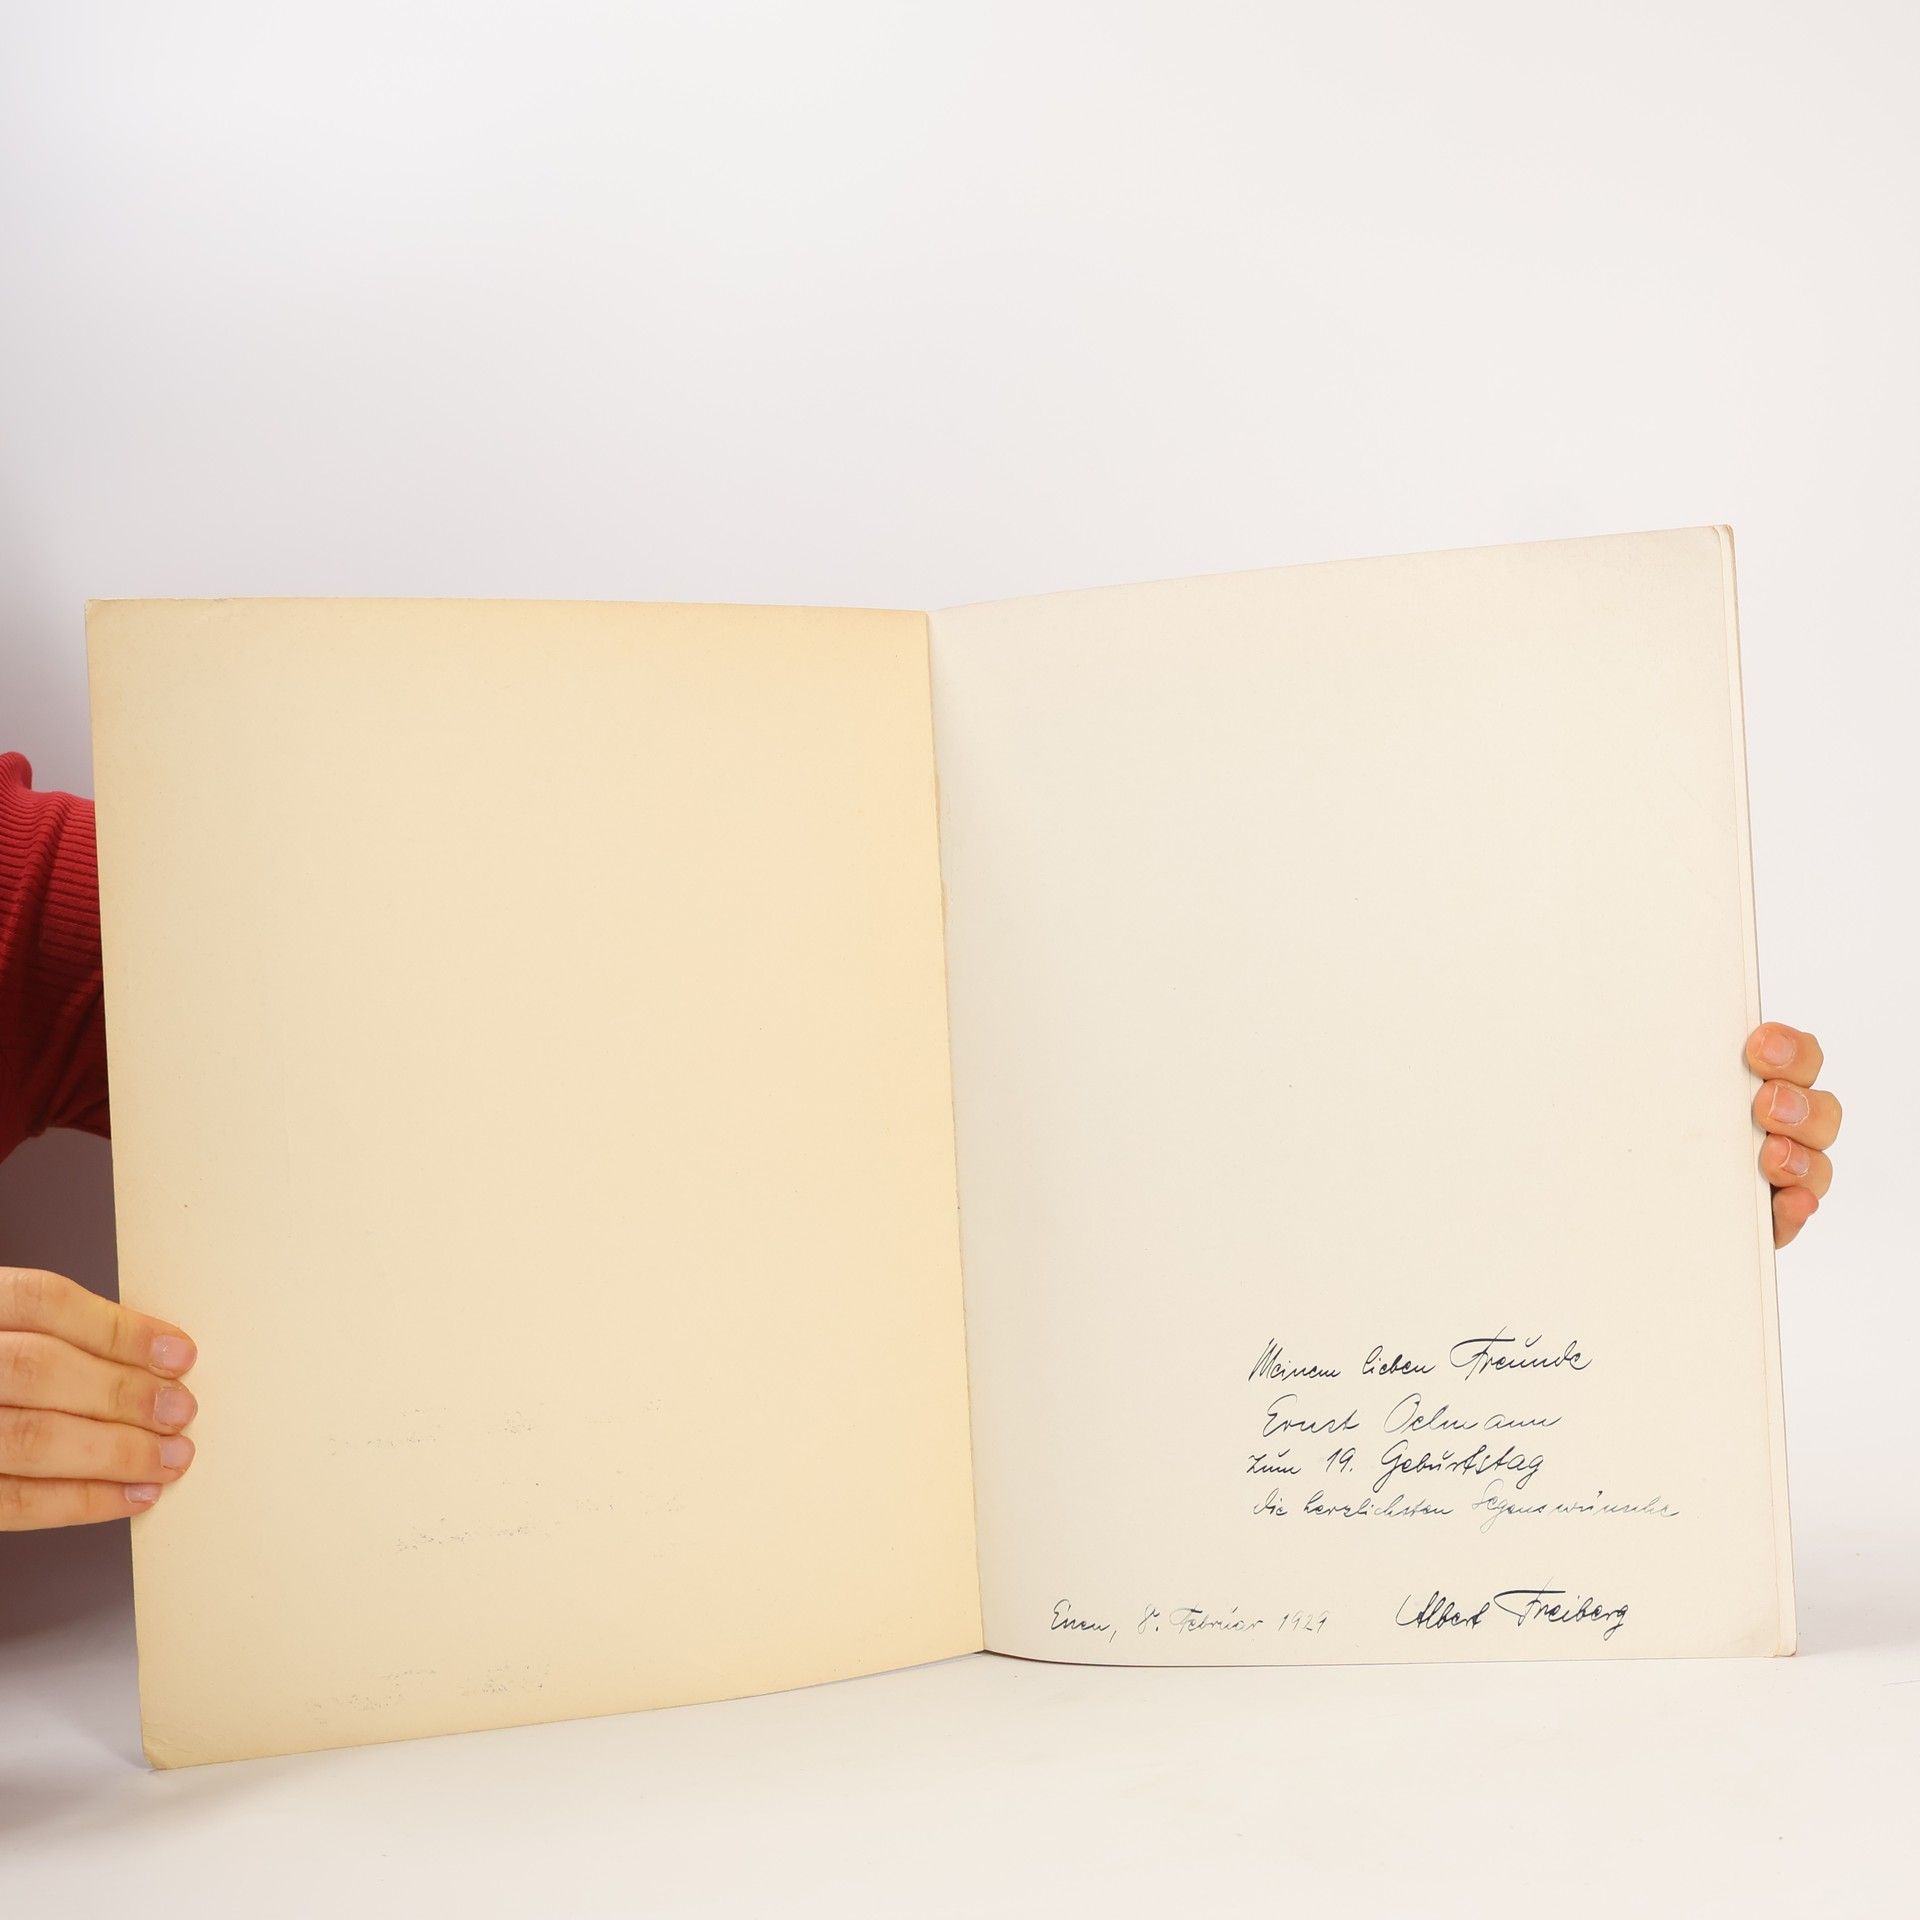 Meinem lieben Freunde
Ernst Oelmann
zum 19. Geburtstag
die herzlichsten Segenswünsche
8. Februar 1929 Albert Freiberg